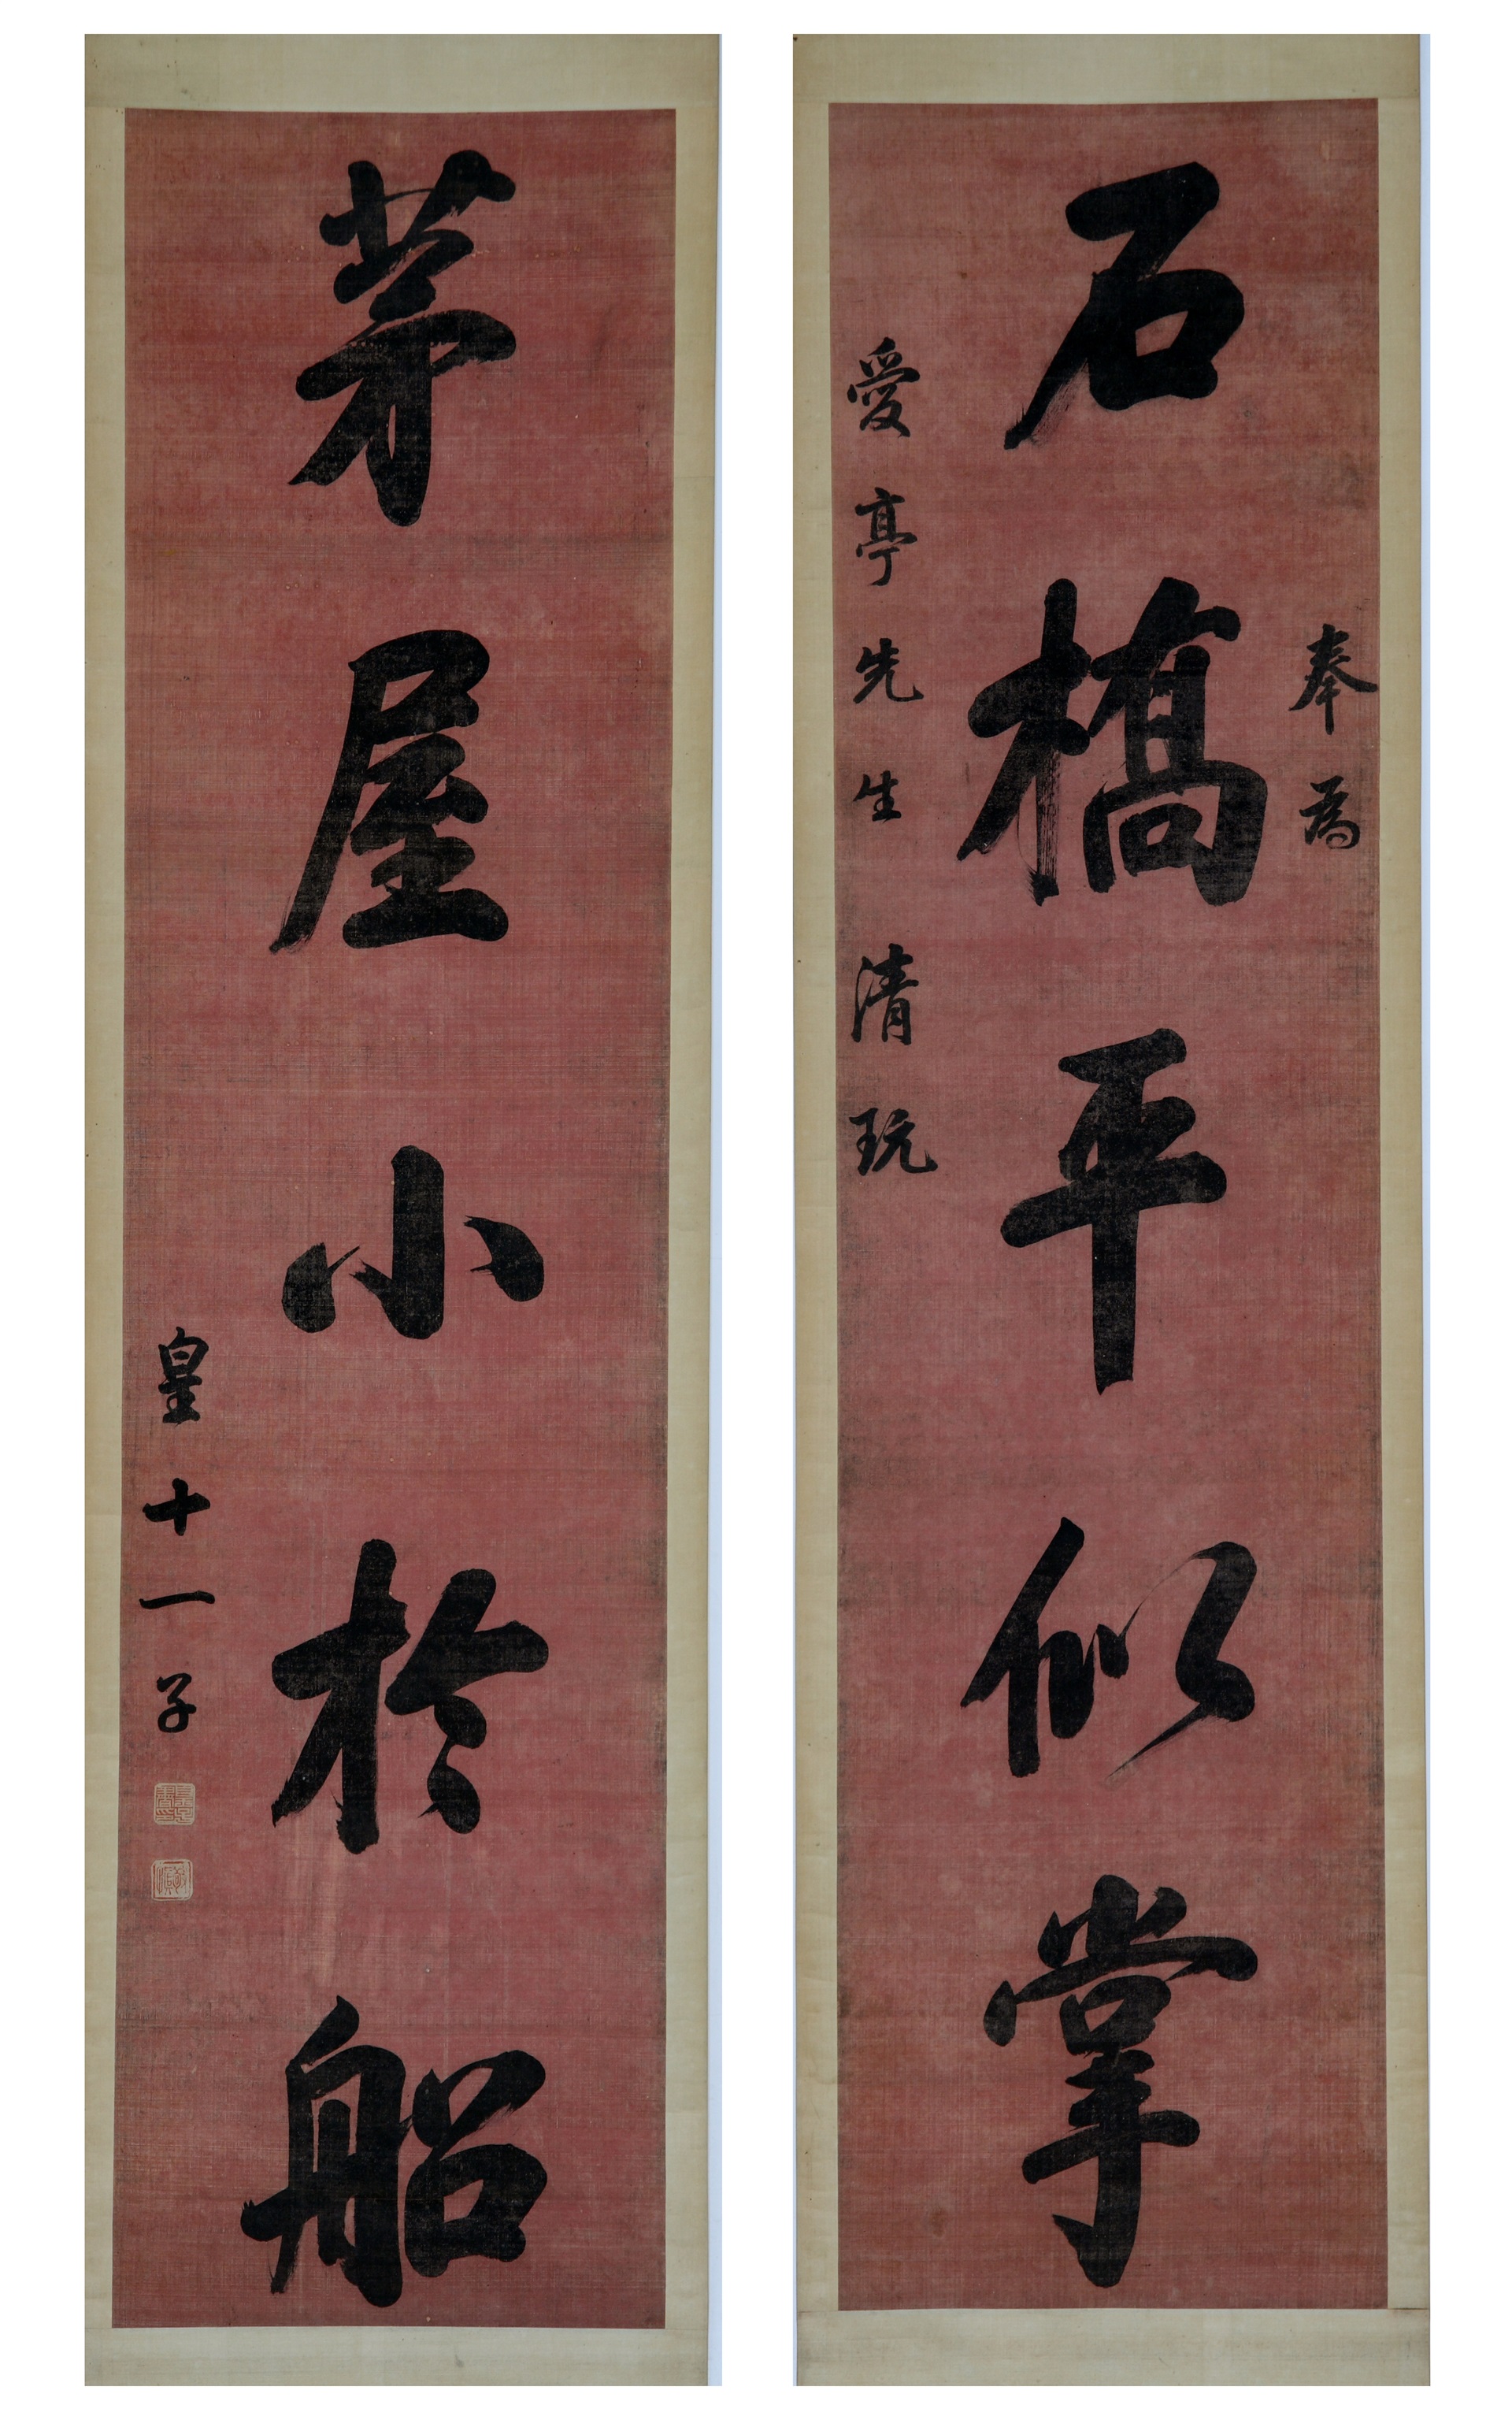 奉為
石橋平似掌
愛亭先生清玩
茅屋小於船
皇十一子